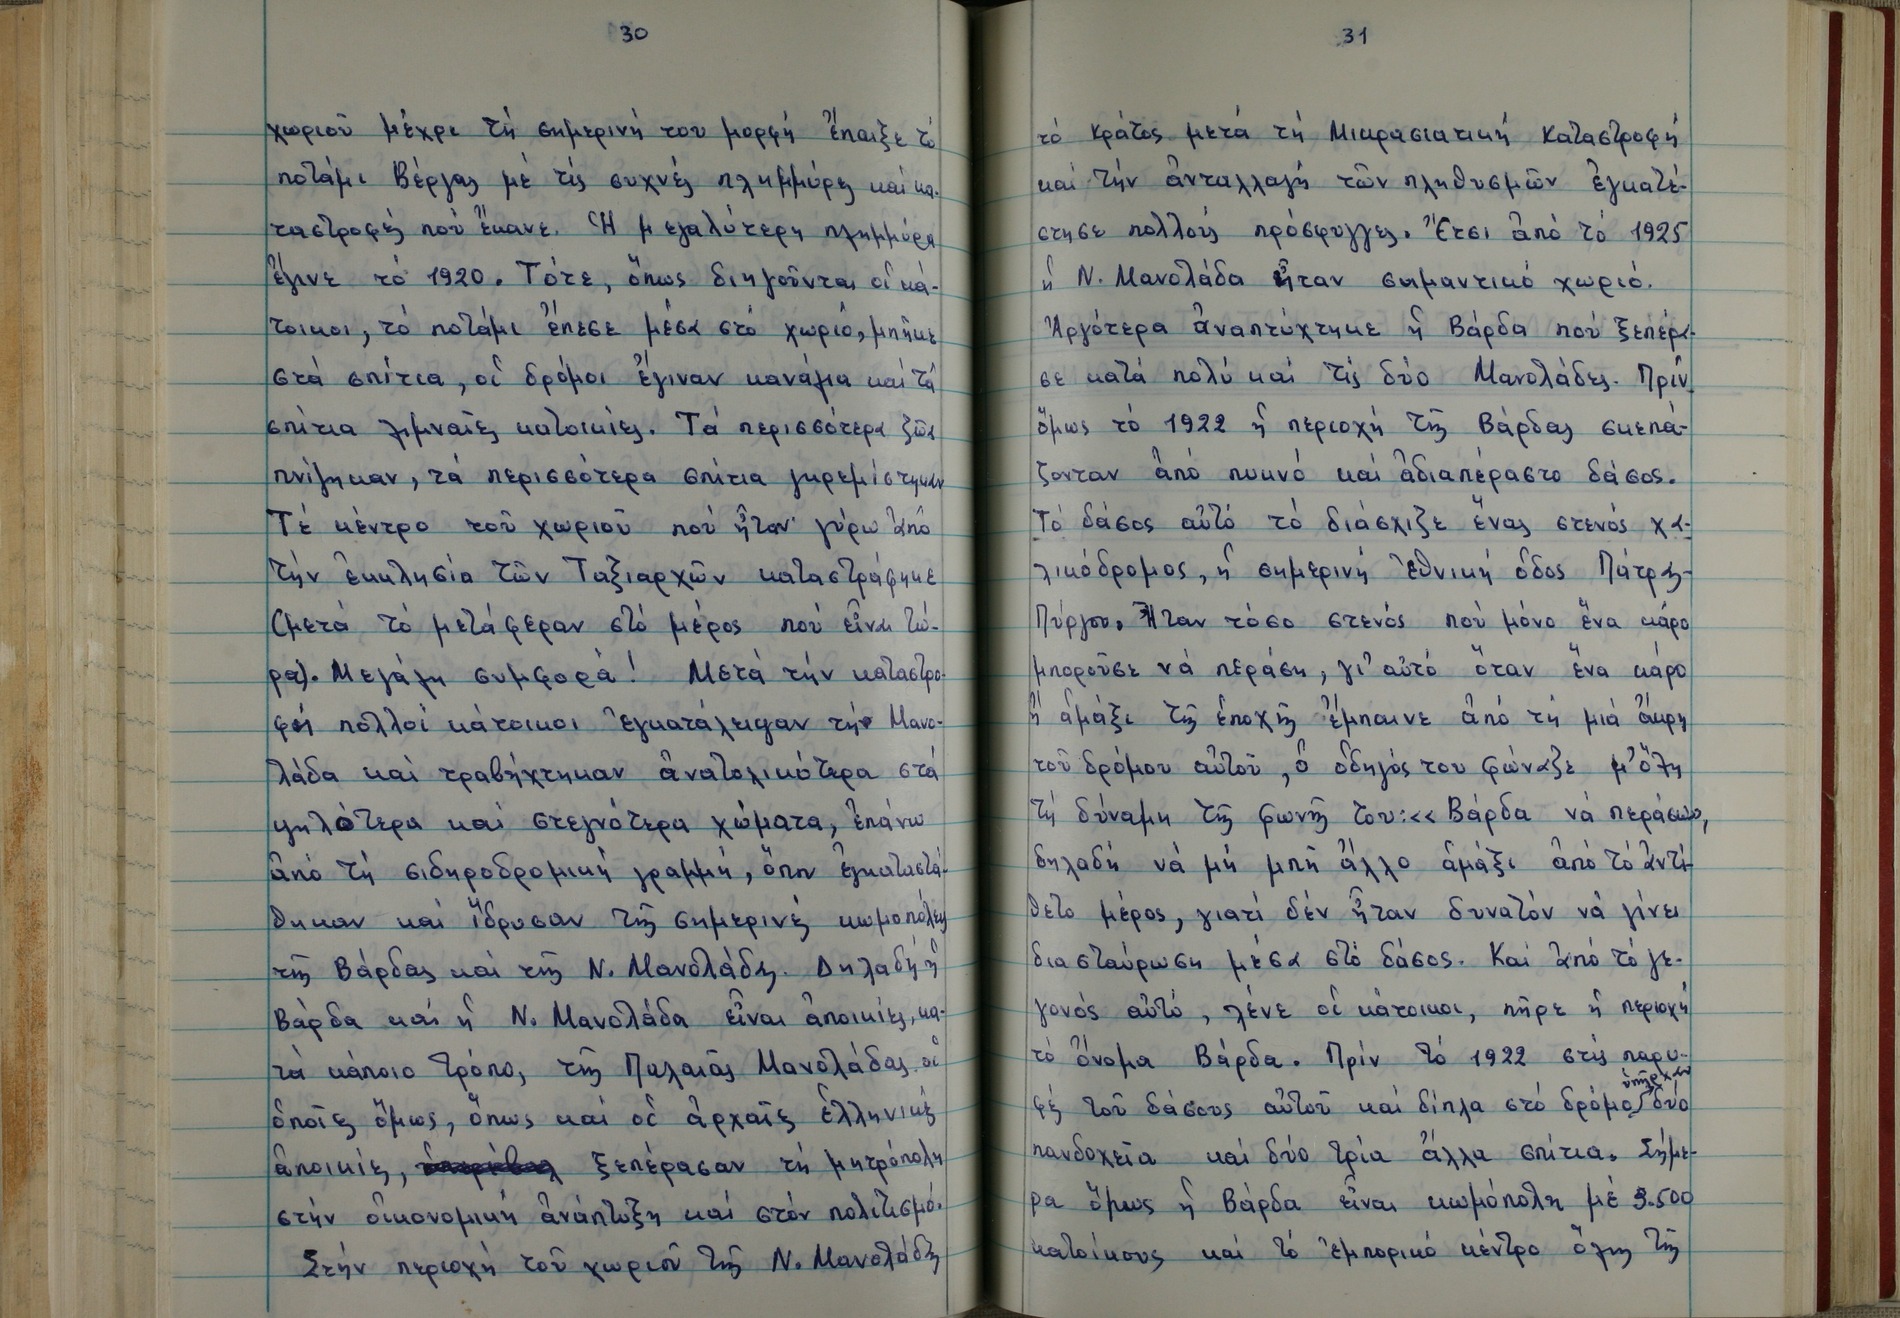 30
χωριοῦ μέχρι τή σημερινή του μορφή ἔπαιξε τό
ποτάμι Βέργας μέ τίς συχνές πλημμύρες καί κα-
ταστροφές πού ἔκανε. Ἡ μεγαλύτερη πλημμύρα
ἔγινε τό 1920. Τότε, ὅπως διηγοῦνται οἱ κά-
τοικοι, τό ποτάμι ἔπεσε μέσα στό χωριό, μπῆκε
στά σπίτια, οἱ δρόμοι ἔγιναν κανάλια καί τά
σπίτια λιμναῖες κατοικίες. Τά περισσότερα ζῶα
πνίγηκαν, τά περισσότερα σπίτια γκρεμίστηκαν
Τέ κέντρο τοῦ χωριοῦ πού ἦταν γύρω ἀπό
τήν ἐκκλησία τῶν Ταξιαρχῶν καταστράφηκε
(μετά τό μετάφεραν στό μέρος πού εἶναι τώ-
ρα). Μεγάλη συμφορά! Μετά τήν καταστρο-
φή πολλοί κάτοικοι ἐγκατάλειψαν τήν Μανο-
λάδα καί τραβήχτηκαν ἀνατολικότερα στά
ψηλότερα καί στεγνότερα χώματα, ἐπάνω
ἀπό τή σιδηροδρομική γραμμή, ὅπου ἐγκαταστά-
θηκαν καί ἵδρυσαν τῆς σημερινές κωμοπόλεις
τῆς Βάρδας καί τῆς Ν. Μανολάδας. Δηλαδή ἡ
Βάρδα καί ἡ Ν. Μανολάδα εἶναι ἀποικίες, κα-
τά κάποιο τρόπο, τῆς Παλαιᾶς Μανολάδας οἱ
ὁποῖες ὅμως, ὅπως καί οἱ ἀρχαῖες ἑλληνικές
ἀποικίες, ξεπέρασαν τή μητρόπολη
στήν οἰκονομική ἀνάπτυξη καί στόν πολιτισμό.
Στήν περιοχή τοῦ χωριοῦ τῆς Ν. Μανολάδας
31
τό κράτος μετά τή Μικρασιατική Καταστροφή
καί τήν ἀνταλλαγή τῶν πληθυσμῶν ἐγκατέ-
στησε πολλούς πρόσφυγγες. Ἔτσι ἀπό τό 1925
ἡ Ν. Μανολάδα ἦταν σημαντικό χωριό.
Ἀργότερα ἀναπτύχτηκε ἡ Βάρδα πού ξεπέρα-
σε κατά πολύ καί τίς δύο Μανολάδες. Πρίν
ὅμως τό 1922 ἡ περιοχή τῆς Βάρδας σκεπά-
ζονταν ἀπό πυκνό καί ἀδιαπέραστο δάσος.
Τό δάσος αὐτό τό διάσχιζε ἕνας στενός χα-
λικόδρομος, ἡ σημερινή ἐθνική ὁδος Πάτρας-
Πύργου. Ἦταν τόσο στενός πού μόνο ἕνα κάρο
μποροῦσε νά περάση, γι' αὐτό ὅταν ἕνα κάρο
ἤ ἁμάξι τῆς ἐποχῆς ἔμπαινε ἀπό τή μιά ἄκρη
τοῦ δρόμου αὐτοῦ, ὁ ὁδηγός του φώναζε μ' ὅλη
τή δύναμη τῆς φωνῆς του: «Βάρδα νά περάσω»,
δηλαδή νά μή μπῆ ἄλλο ἁμάξι ἀπό τό ἀντί-
θετο μέρος, γιατί δέν ἦταν δυνατόν νά γίνει
διασταύρωση μέσα στό δάσος. Καί ἀπό τό γε-
γονός αὐτό, λένε οἱ κάτοικοι, πῆρε ἡ περιοχή
τό ὄνομα Βάρδα. Πρίν τό 1922 στίς παρυ-
φές τοῦ δάσους αὐτοῦ καί δίπλα στό δρόμο ὑπῆρχαν δύο
πανδοχεῖα καί δύο τρία ἄλλα σπίτια. Σήμε-
ρα ὅμως ἡ Βάρδα εἶναι κωμόπολη μέ 3.500
κατοίκους καί τό ἐμπορικό κέντρο ὅλης τῆς